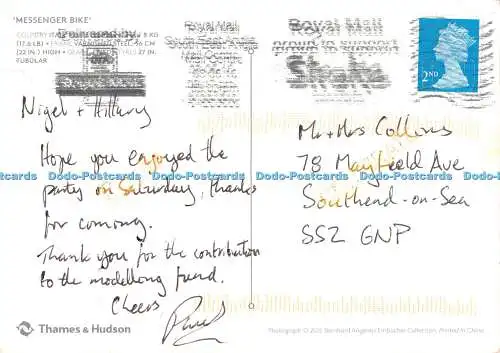 'MESSENGER BIKE'
COUNTRY ITALY
8 KG
(17.6 LB) • FRAME VARNISHED STEEL, 56 CM
(22 IN.) HIGH •
27 IN.
TUBULAR
Royal Mail
South East Anglia
Mail Centre
Royal Mail
proud to support
Stroke
2ND
Nigel + Hillary
Hope you enjoyed the
party on Saturday, thanks
for coming.
Thank you for the contribution
to the modelling fund.
Cheers
Paul
Mr + Mrs Collins
78 Mayfield Ave
Southend-on-Sea
SS2 GNP
Dodo-Postcards Dodo-Postcards Dodo-Postcards Dodo-Postcards Dodo-Postcards Dodo-Postcards
Thames & Hudson
Photograph © 2012 Bernhard Angerer, Embacher Collection. Printed in China